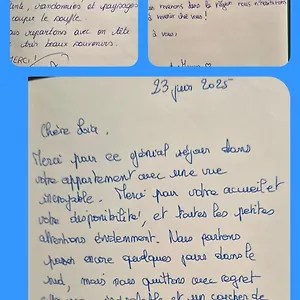 randonnées et paysages
coupe le souffle.
repartons avec en tête
très beaux souvenirs.
MERCI!
revenons dans la région nous n'hésiterons
à revenir chez vous!
à vous,
23 juin 2025
Chère
Merci pour ce génial séjour dans
votre appartement avec une vue
incroyable. Merci pour votre accueil et
votre disponibilité, et toutes les petites
attentions évidemment. Nous partons
passer encore quelques jours dans le
sud, mais nous quittons avec regret
et un coucher de